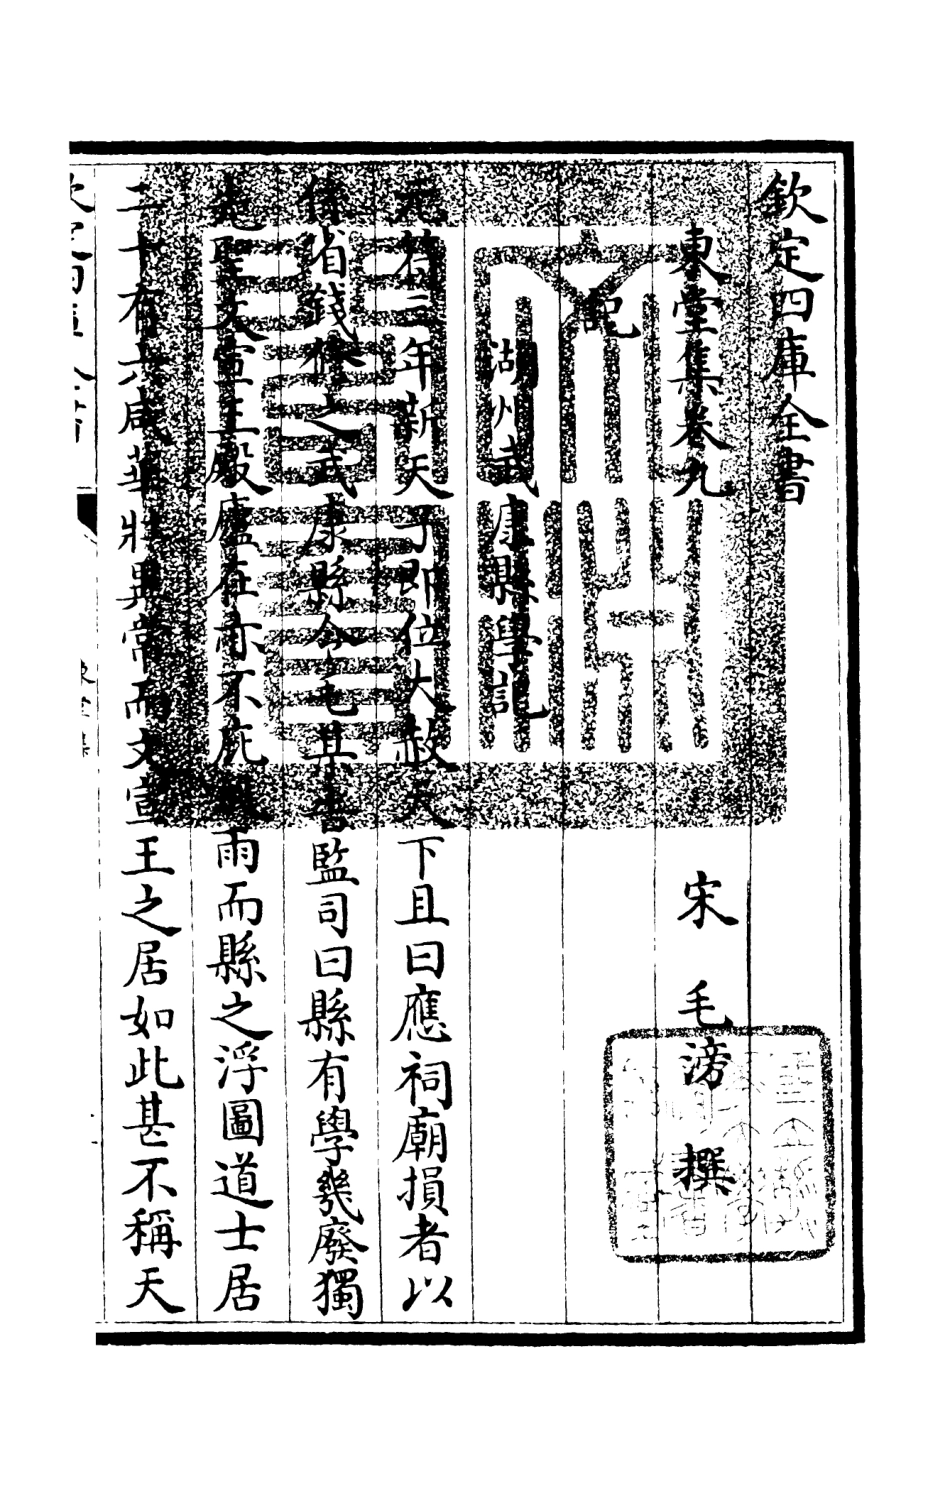 欽定四庫全書
東堂集卷九
宋 毛滂 撰
記
湖州武康縣學記
元符三年新天子即位大赦天下且曰應祠廟損者以
係省錢修之武康縣令毛某書監司曰縣有學幾廢獨
先聖文宣王殿廬在亦不庇風雨而縣之浮圖道士居
二十有六咸華壯異常而文宣王之居如此甚不稱天
欽定四庫全書
東堂集